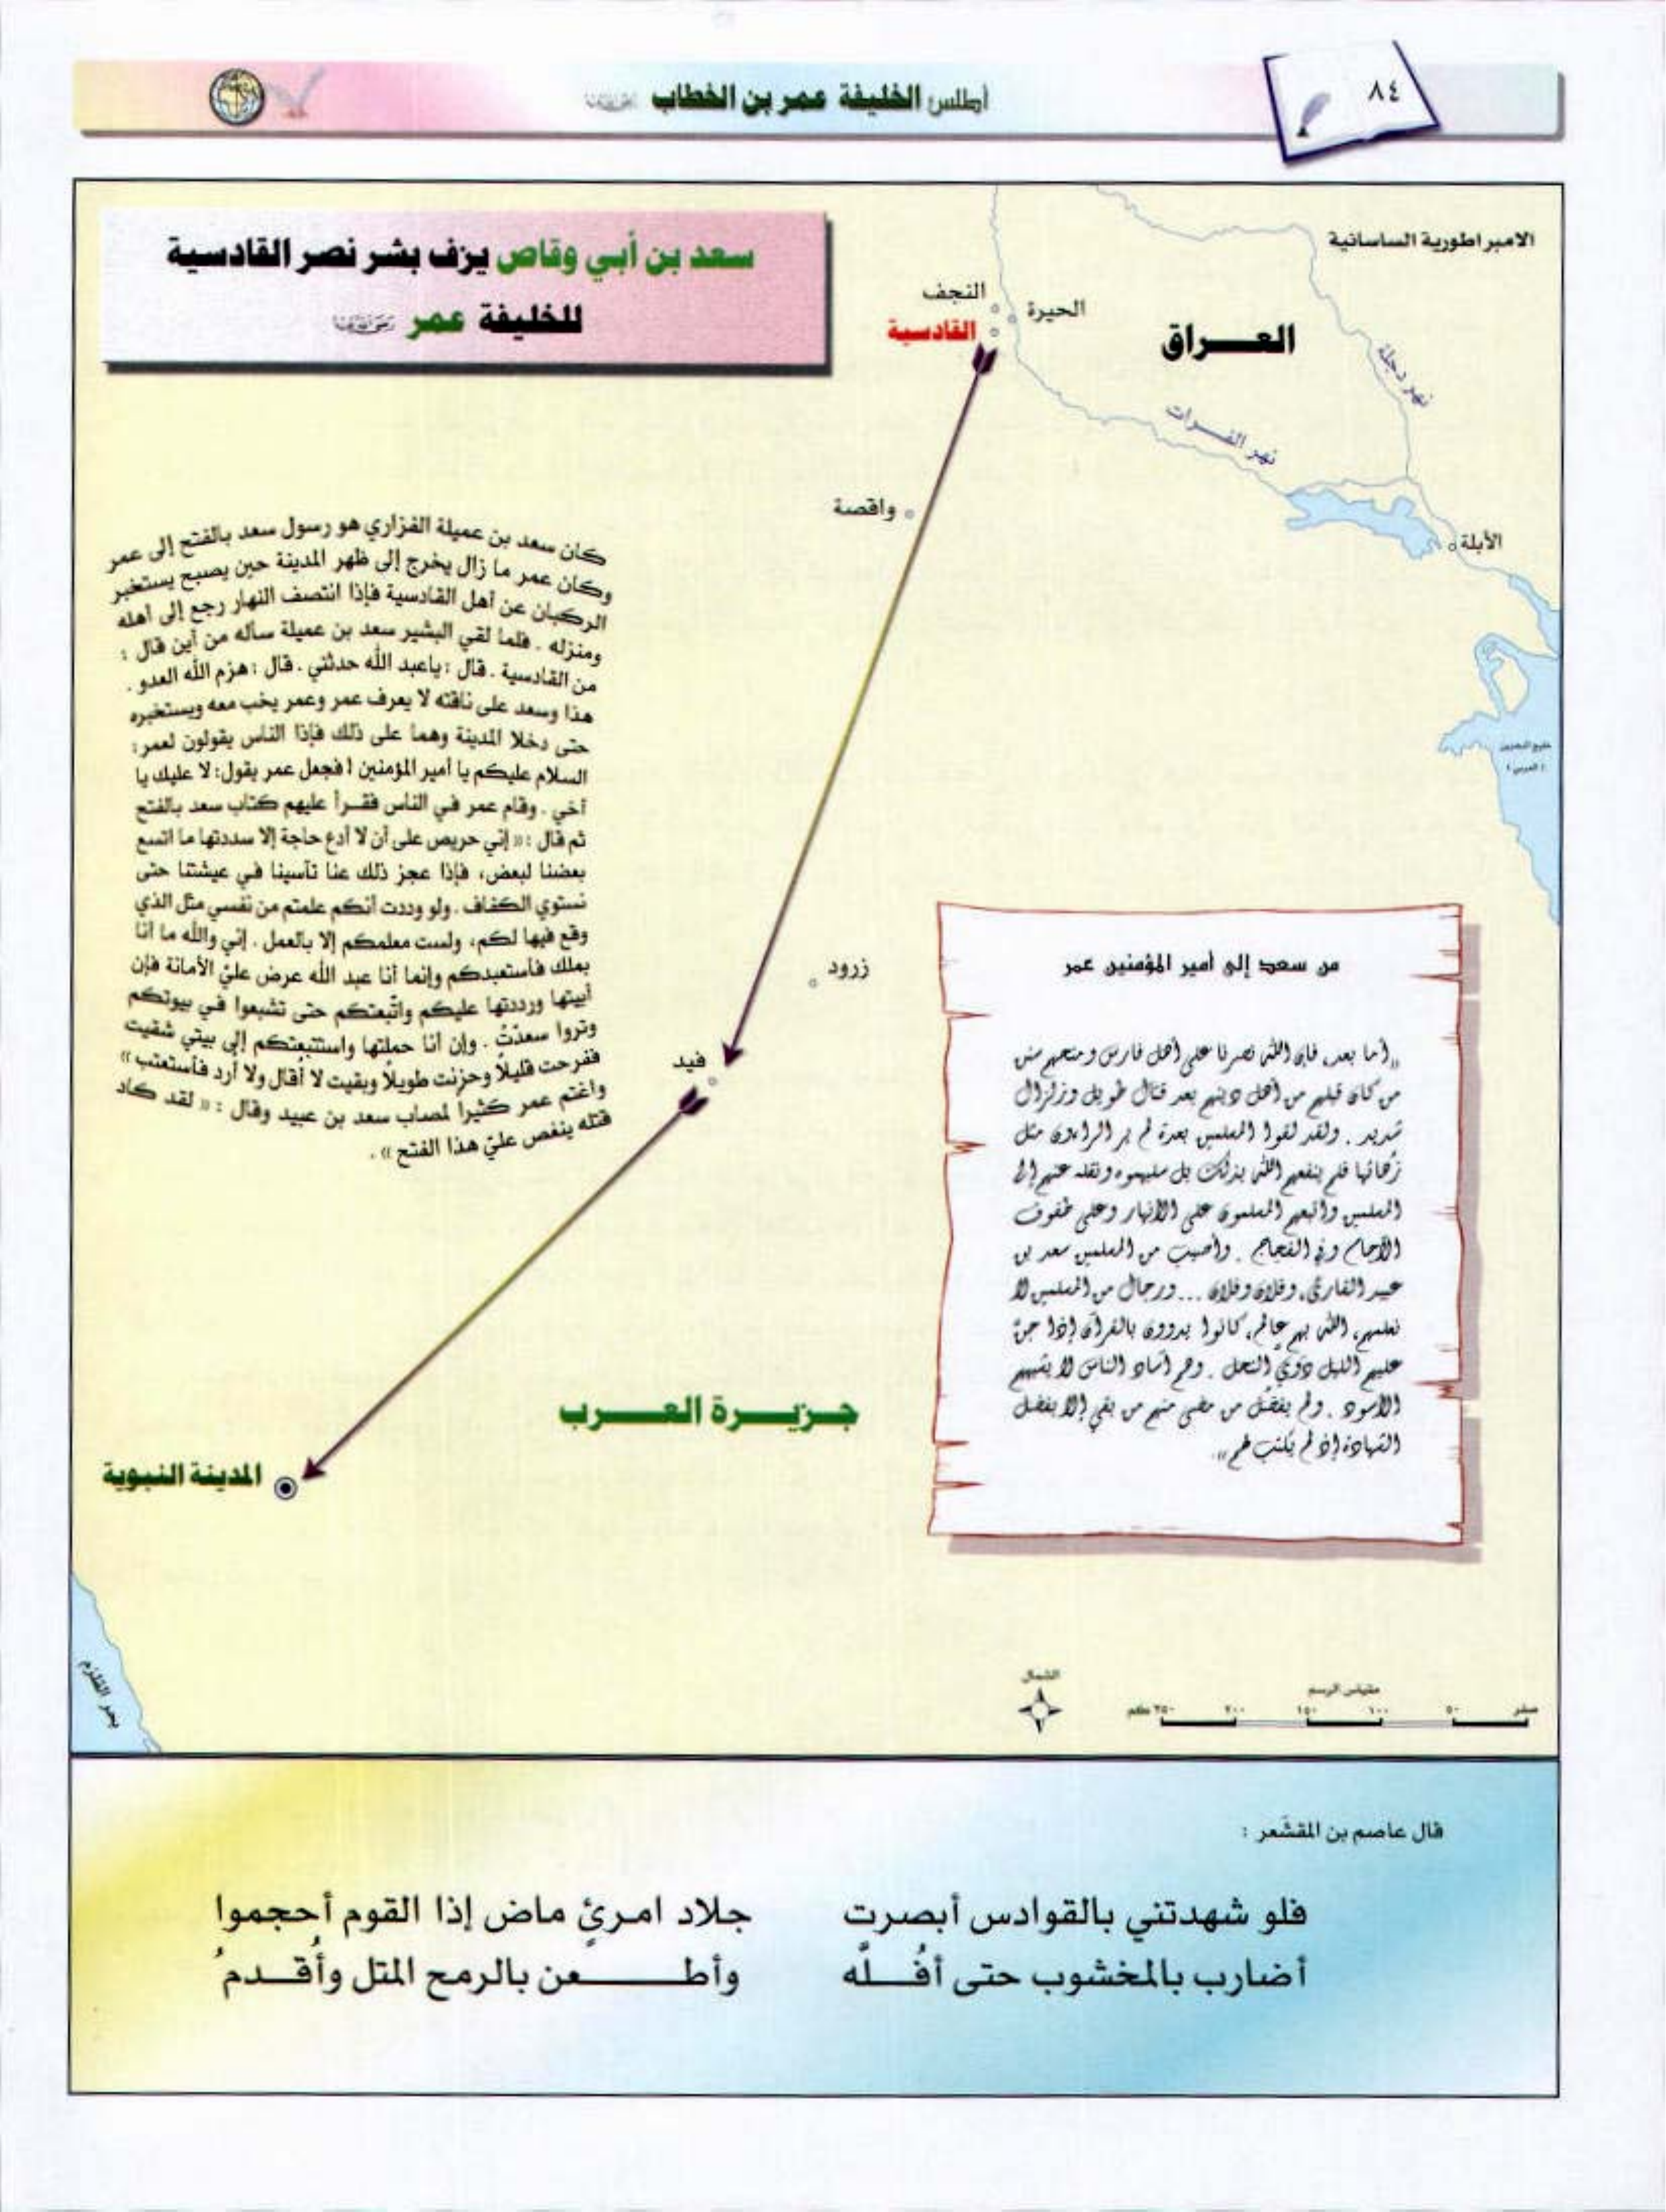 ٨٤
أطلس الخليفة عمر بن الخطاب
سعد بن أبي وقاص يزف بشر نصر القادسية
للخليفة عمر
الامبراطورية الساسانية
النجف
الحيرة
القادسية
العـــراق
نهر دجلة
نهر الفـــرات
واقصة
الأبلة
كان سعد بن عميلة الفزاري هو رسول سعد بالفتح إلى عمر
وكان عمر ما زال يخرج إلى ظهر المدينة حين يصبح يستخبر
الركبان عن أهل القادسية فإذا انتصف النهار رجع إلى أهله
ومنزله . فلما لقي البشير سعد بن عميلة سأله من أين قال :
من القادسية . قال : ياعبد الله حدثني . قال : هزم الله العدو .
هذا وسعد على ناقته لا يعرف عمر وعمر يخب معه ويستخبره
حتى دخلا المدينة وهما على ذلك فإذا الناس يقولون لعمر :
السلام عليكم يا أمير المؤمنين ! فجعل عمر يقول : لا عليك يا
أخي . وقام عمر في الناس فقـرأ عليهم كتاب سعد بالفتح
ثم قال : « إني حريص على أن لا أدع حاجة إلا سددتها ما اتسع
بعضنا لبعض، فإذا عجز ذلك عنا تأسينا في عيشتنا حتى
نستوي الكفاف . ولو وددت أنكم علمتم من نفسي مثل الذي
وقع فيها لكم، ولست معلمكم إلا بالعمل . إني والله ما أنا
بملك فأستعبدكم وإنما أنا عبد الله عرض عليّ الأمانة فإن
أبيتها ورددتها عليكم واتّبعتكم حتى تشبعوا في بيوتكم
وتروا سعدْتُ . وإن أنا حملتها واستتبعتكم إلى بيتي شقيت
ففرحت قليلاً وحزنت طويلاً وبقيت لا أقال ولا أرد فأستعتب »
واغتم عمر كثيرا لمصاب سعد بن عبيد وقال : « لقد كاد
قتله ينغص عليّ هذا الفتح » .
خليج البحرين
( العربي )
زرود
فيد
من سعد إلى أمير المؤمنين عمر
« أما بعد، فإن الله نصرنا على أهل فارس ومنحهم سنن
من كان قبلهم من أهل دينهم بعد قتال طويل وزلزال
شديد . ولقد لقوا المسلمين بعدة لم ير الراءون مثل
زُهائها فلم ينفعهم الله بذلك بل سلبهموه ونقله عنهم إلى
المسلمين واتبعهم المسلمون على الأنهار وعلى طفوف
الآجام وفي الفجاج . وأصيب من المسلمين سعد بن
عبيد القارئ، وفلان وفلان ... ورجال من المسلمين لا
نعلمهم، الله بهم عالم، كانوا يدوون بالقرآن إذا جنّ
عليهم الليل دَوِيّ النحل . وهم آساد الناس لا يشبههم
الأسود . ولم يفضُل من مضى منهم من بقي إلا بفضل
الشهادة إذ لم يكتب لهم » .
جـزيـــرة العـــرب
المدينة النبوية
بحر القلزم
الشمال
مقياس الرسم
صفر ٥٠ ١٠٠ ١٥٠ ٢٠٠ ٢٥٠ كم
قال عاصم بن المقشَعر :
فلو شهدتني بالقوادس أبصرت جلاد امـرئٍ ماض إذا القوم أحجموا
أضارب بالمخشوب حتى أفُـــلَّه وأطـــــعن بالرمح المتل وأُقـــدمُ